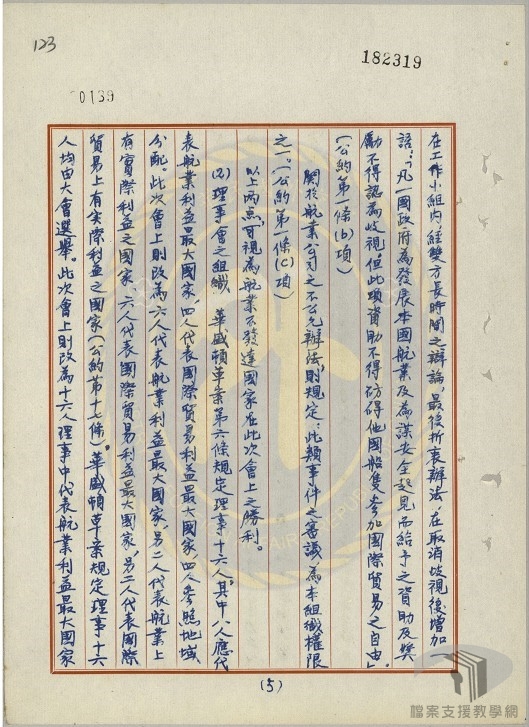 123
182319
0139
在工作小組內，經雙方長時間之辯論，最後折衷辦法，在取消歧視後增加
一語：「凡一國政府為發展本國航業及為謀安全起見而給予之資助及獎
勵不得認為歧視，但此項資助不得妨碍他國船隻參加國際貿易之自由」
（公約第一條(b)項）
關於航業公司之不公允辦法，則規定：此類事件之審議，為本組織權限
之一。（公約第一條(c)項）
以上兩點可視為航業不發達國家在此次會上之勝利。
(2)理事會之組織　華盛頓草案第六條規定理事十六人，其中八人應代
表航業利益最大國家，四人代表國際貿易利益最大國家，四人參照地域
分配。此次會上則改為六人代表航業利益最大國家，另二人代表航業上
有實際利益之國家，六人代表國際貿易利益最大國家，另二人代表國際
貿易上有实際利益之國家（公約第十七條）。華盛頓草案規定理事十六
人均由大會選舉。此次會上則改為十六人理事中代表航業利益最大國家
(5)
檔案支援教學網